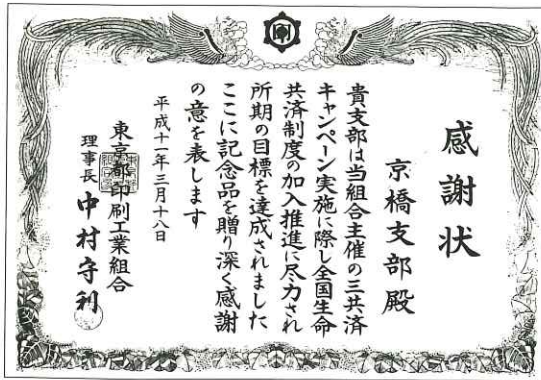 感謝状
京橋支部殿
貴支部は当組合主催の三共済
キャンペーン実施に際し全国生命
共済制度の加入推進に尽力され
所期の目標を達成されました
ここに記念品を贈り深く感謝
の意を表します
平成十一年三月十八日
東京都印刷工業組合
理事長 中村守利